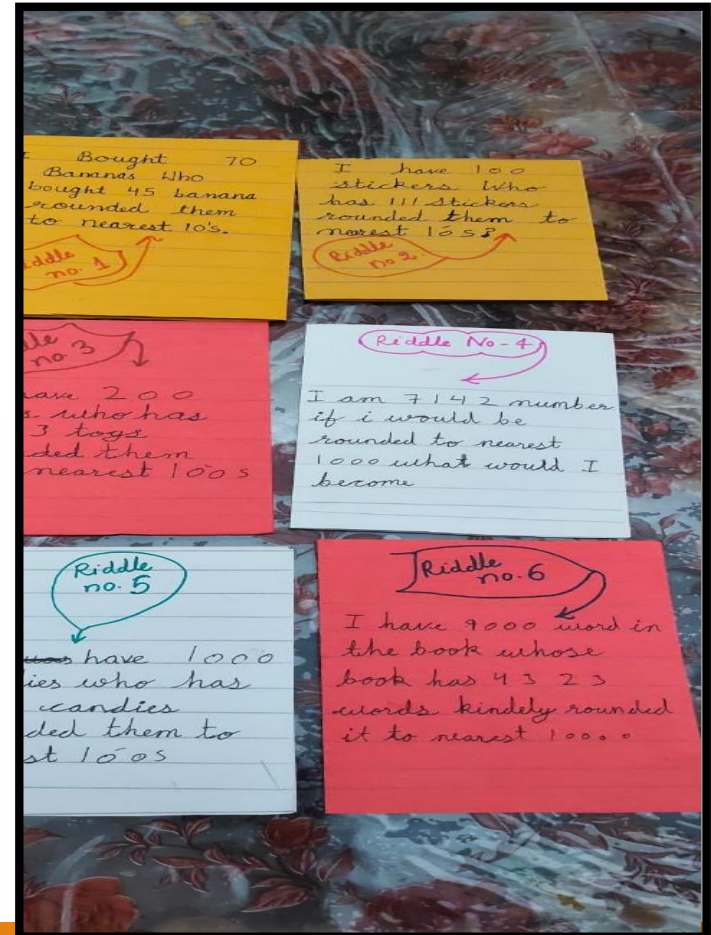 I Bought 70
Bananas Who
bought 45 banana
rounded them
to nearest 10's.
Riddle
no. 1
I have 100
stickers Who
has 111 stickers
rounded them to
nearest 10's?
Riddle
no 2.
no. 3
have 200
who has
3 toys
ded them
nearest 100s
Riddle No-4
I am 7142 number
if i would be
rounded to nearest
1000 what would I
become
Riddle
no. 5
have 1000
ies who has
candies
ded them to
st 100s
Riddle
no. 6
I have 9000 word in
the book whose
book has 4323
words kindely rounded
it to nearest 10000